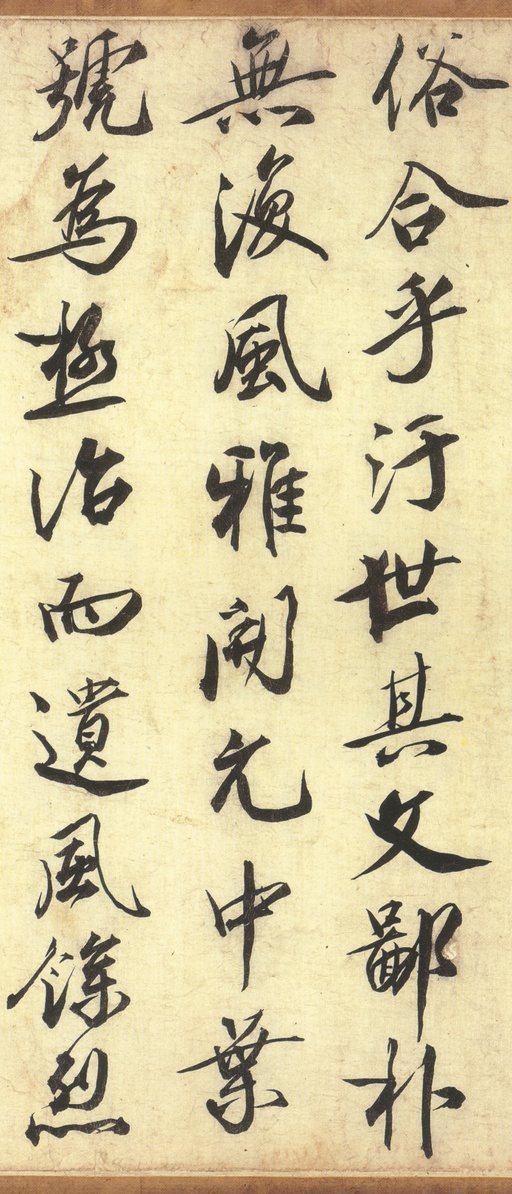 俗合乎汙世其文鄙朴
無復風雅開元中葉
號為極治而遺風餘烈